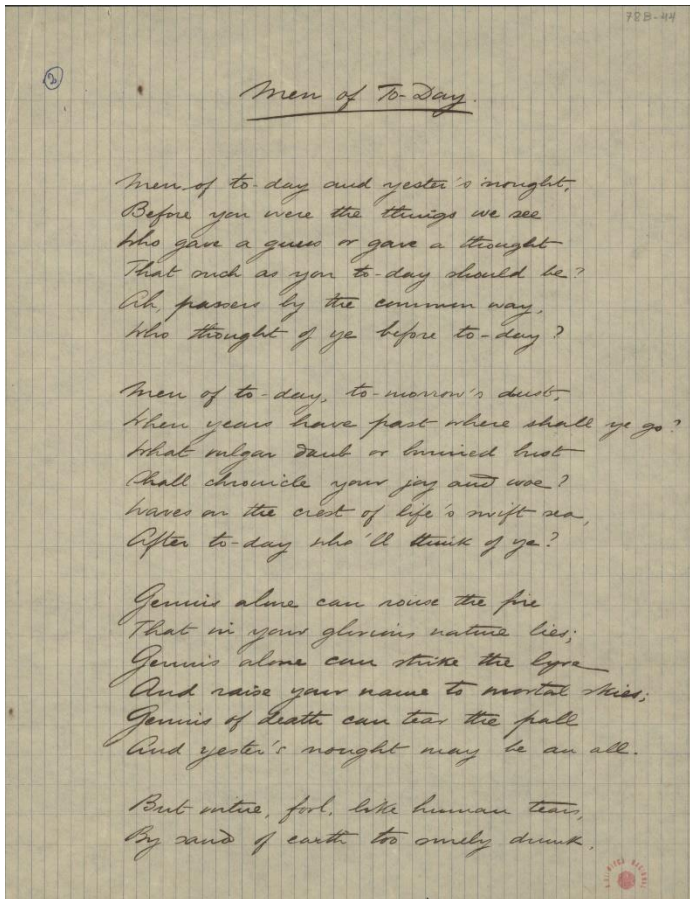 78B-44
2
Men of To-Day.
Men of to-day and yester's nought,
Before you were the things we see
Who gave a guess or gave a thought
That such as you to-day should be?
Ah, passers by the common way,
Who thought of ye before to-day?
Men of to-day, to-morrow's dust,
When years have past where shall ye go?
What vulgar daub or buried bust
Shall chronicle your joy and woe?
Waves on the crest of life's swift sea,
After to-day who'll think of ye?
Genius alone can rouse the fire
That in your glorious nature lies;
Genius alone can strike the lyre
And raise your name to mortal skies;
Genius of death can tear the pall
And yester's nought may be an all.
But virtue, fool, like human tears,
By sand of earth too surely drunk,